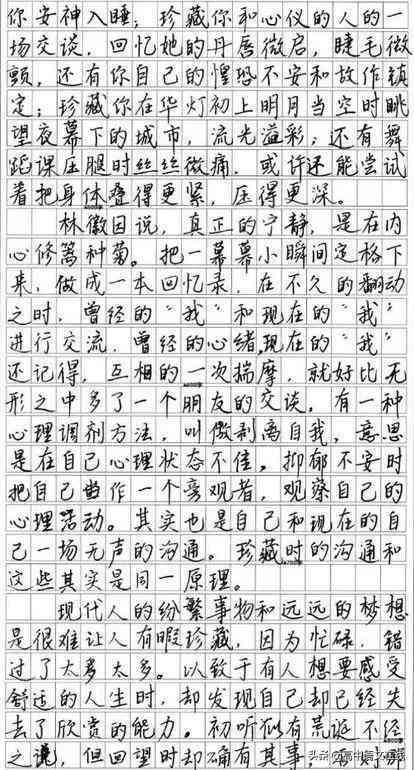 你安神入睡；珍藏你和心仪的人的一
场交谈，回忆她的丹唇微启，睫毛微
颤，还有你自己的惶恐不安和故作镇
定；珍藏你在华灯初上明月当空时眺
望夜幕下的城市，流光溢彩；还有舞
蹈课压腿时丝丝微痛，或许还能尝试
着把身体叠得更紧，压得更深。
林徽因说，真正的宁静，是在内
心修篱种菊。把一幕幕小瞬间定格下
来，做成一本回忆录，在不久的翻动
之时，曾经的“我”和现在的“我”
进行交流，曾经的心绪，现在的“我”
还记得，互相的一次揣摩，就好比无
形之中多了一个朋友的交谈。有一种
心理调剂方法，叫做剥离自我，意思
是在自己心理状态不佳，抑郁不安时
把自己当作一个旁观者，观察自己的
心理活动。其实也是自己和现在的自
己一场无声的沟通。珍藏时的沟通和
这些其实是同一原理。
现代人的纷繁事物和远远的梦想
是很难让人有暇珍藏，因为忙碌，错
过了太多太多。以致于有人想要感受
舒适的人生时，却发现自己却已经失
去了欣赏的能力。初听似有荒诞不经
之说，但回望时却确有其事，
头条